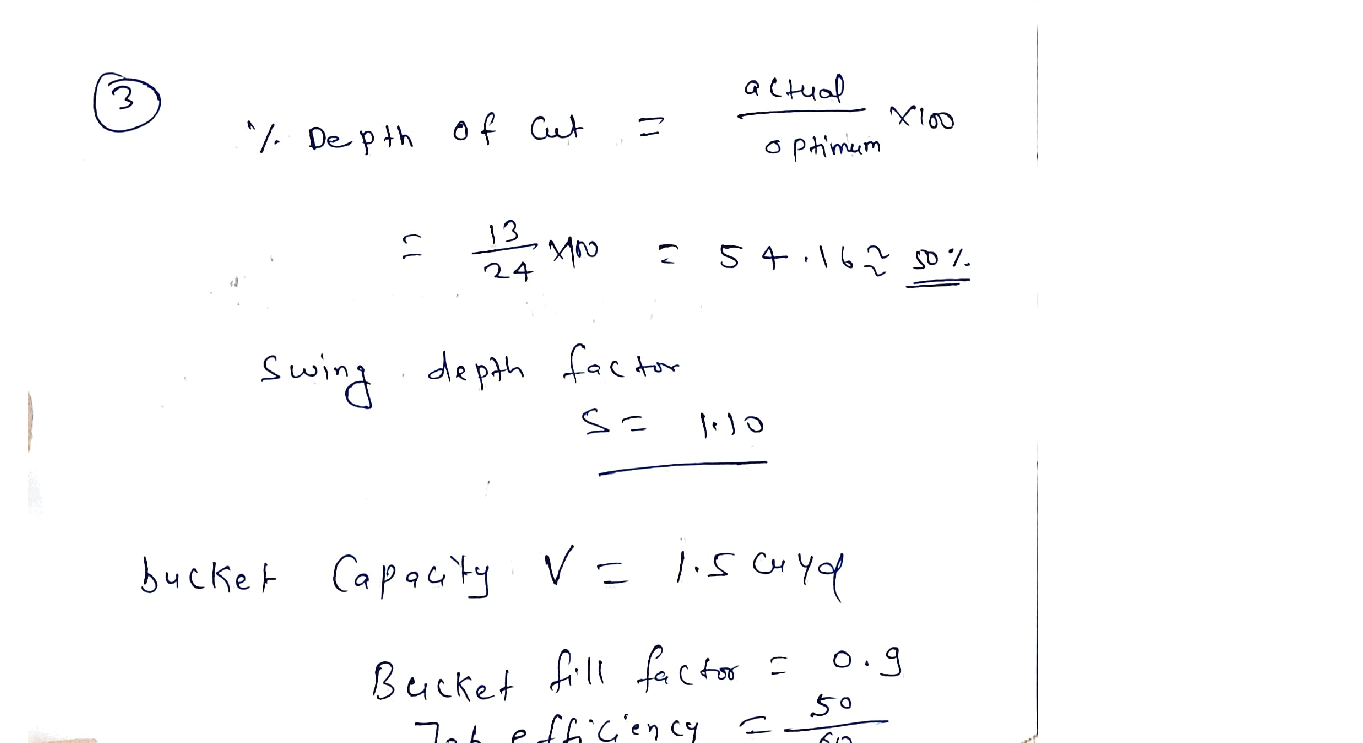 3
% Depth of Cut = actual / optimum ×100
= 13/24 ×100 = 54.16 ≈ 50 %
Swing depth factor
S = 1.10
bucket Capacity V = 1.5 cu yd
Bucket fill factor = 0.9
Job efficiency = 50/60